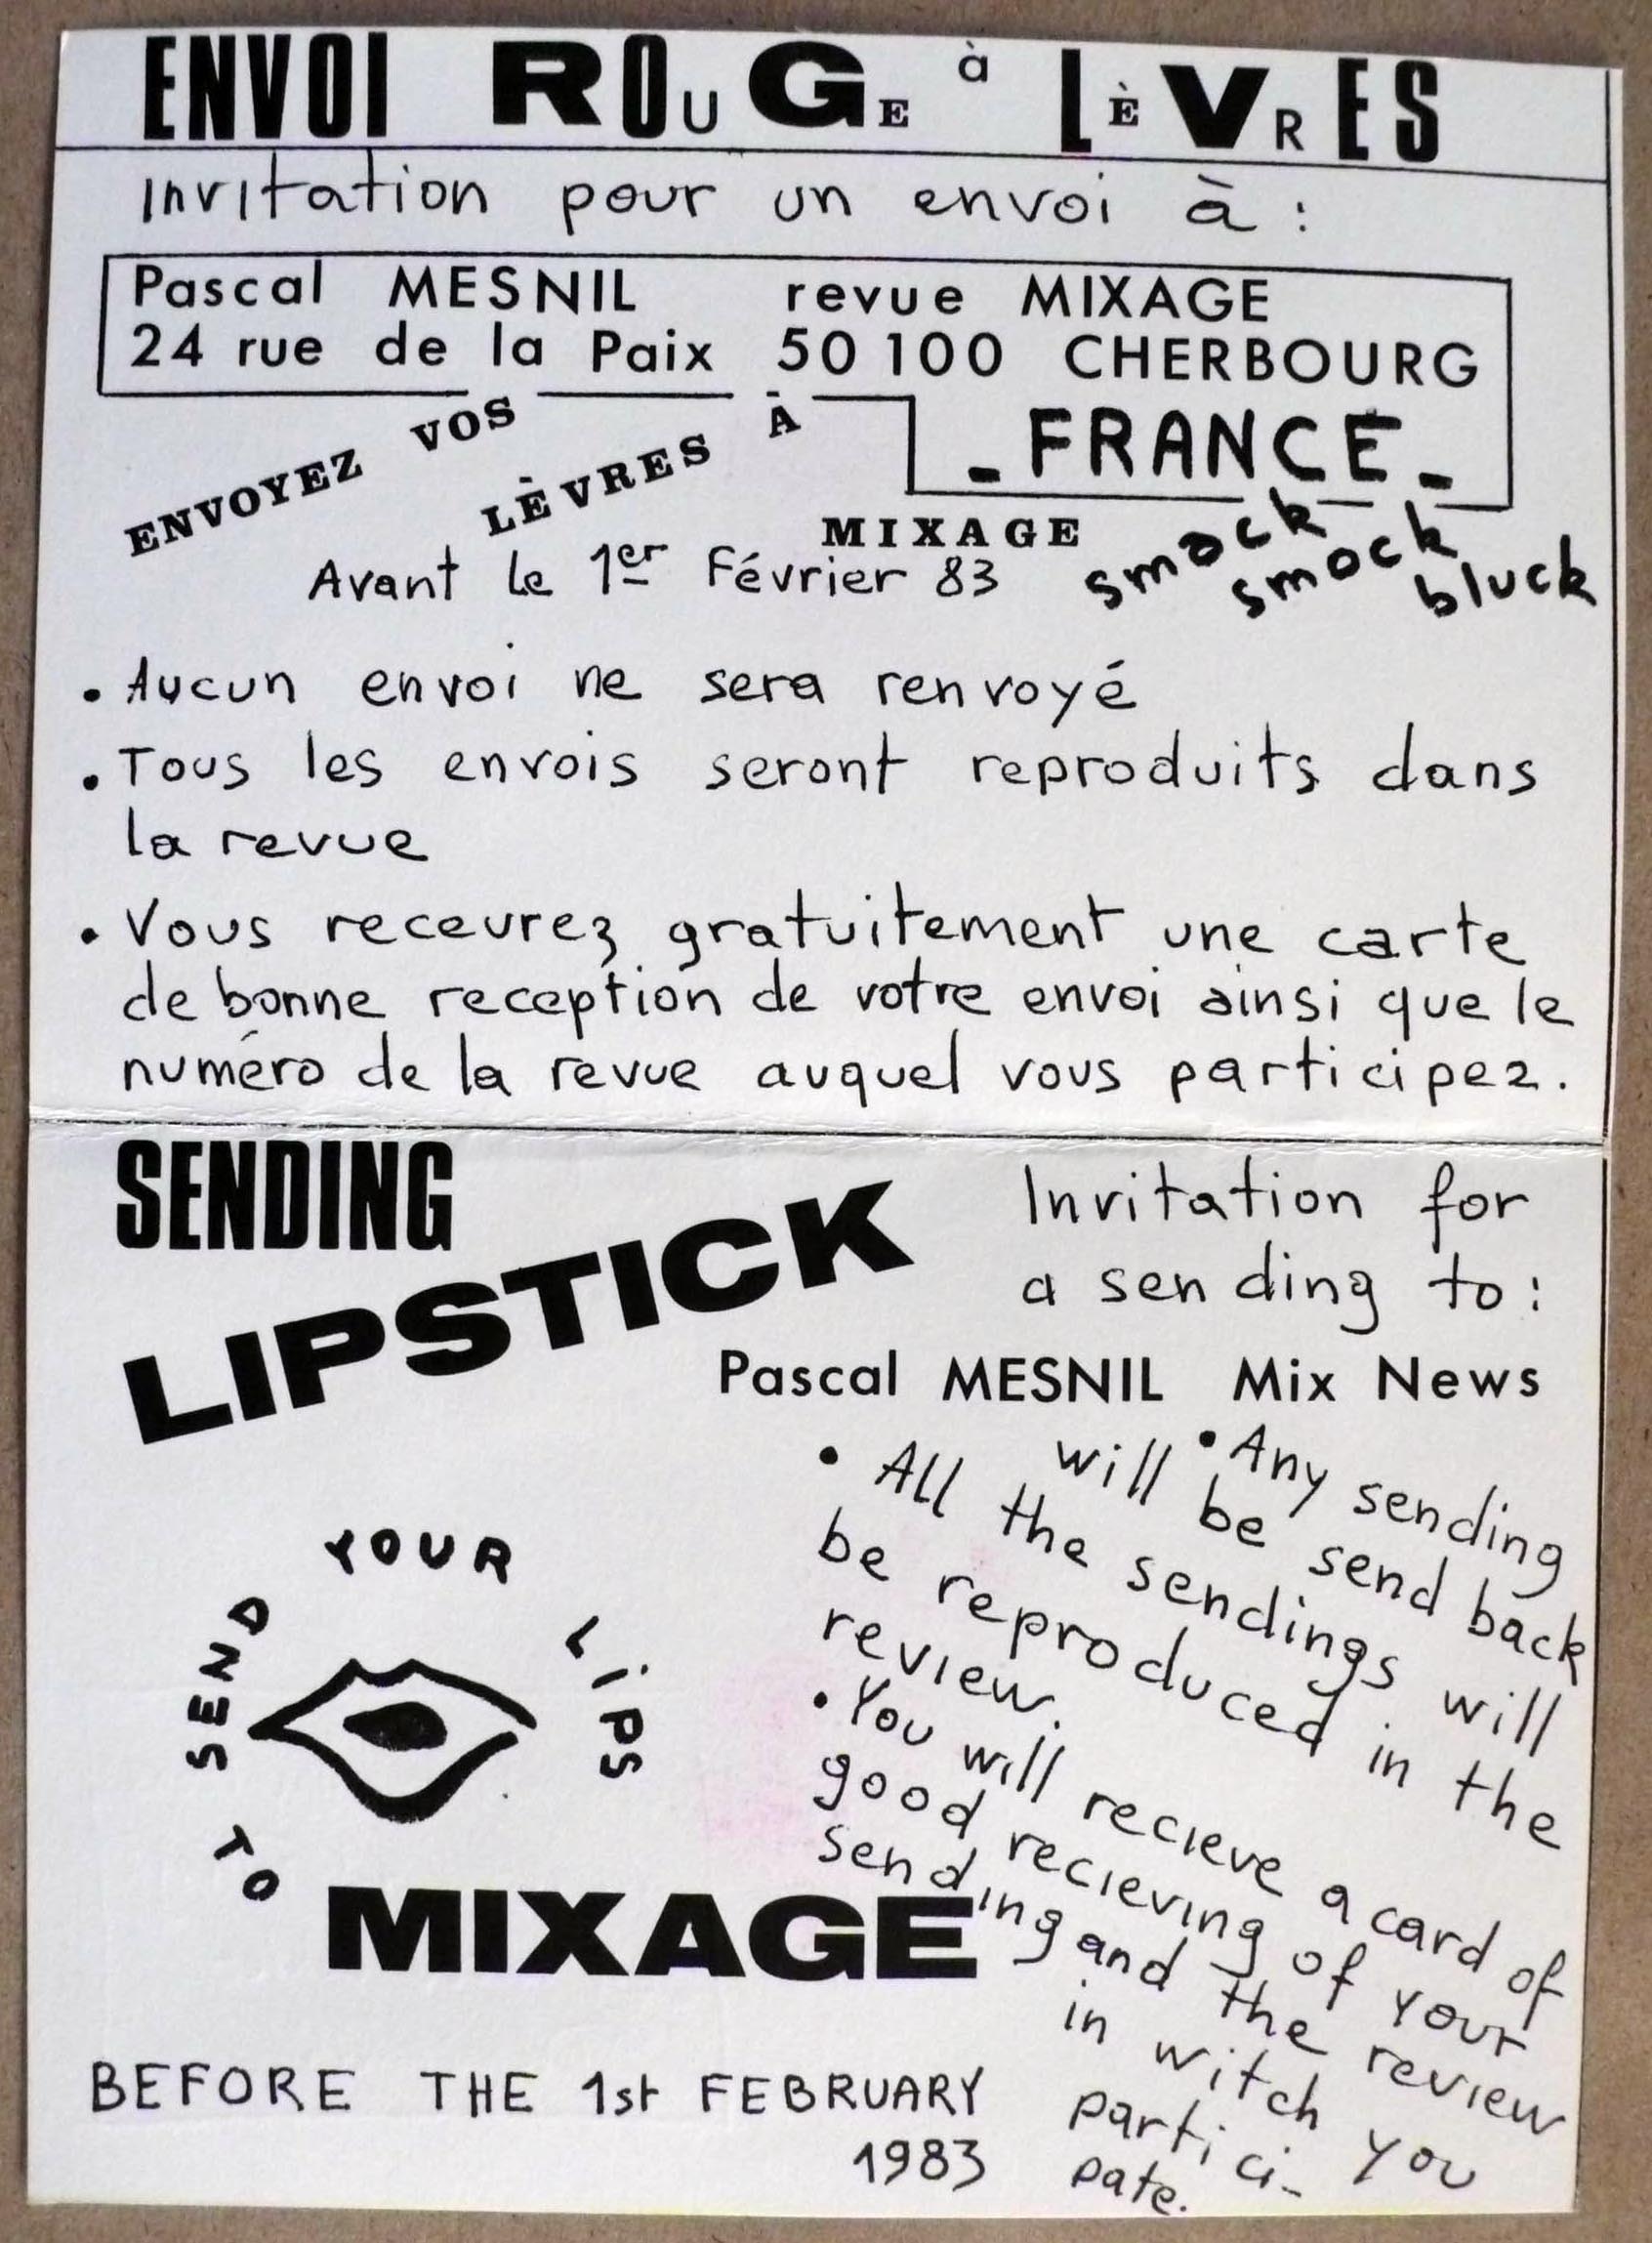 ENVOI ROUGE à LÈVRES
Invitation pour un envoi à :
Pascal MESNIL revue MIXAGE
24 rue de la Paix 50 100 CHERBOURG
- FRANCE -
ENVOYEZ VOS
LÈVRES À
MIXAGE
smack
smock
bluck
Avant le 1er Février 83
• Aucun envoi ne sera renvoyé
• Tous les envois seront reproduits dans
la revue
• Vous recevrez gratuitement une carte
de bonne reception de votre envoi ainsi que le
numéro de la revue auquel vous participez.
SENDING
LIPSTICK
Invitation for
a sending to :
Pascal MESNIL Mix News
• Any sending
will be send back
• All the sendings will
be reproduced in the
review.
• You will recieve a card of
good recieving of your
sending and the review
in witch you
partici-
pate.
SEND YOUR LIPS
TO
MIXAGE
BEFORE THE 1st FEBRUARY
1983